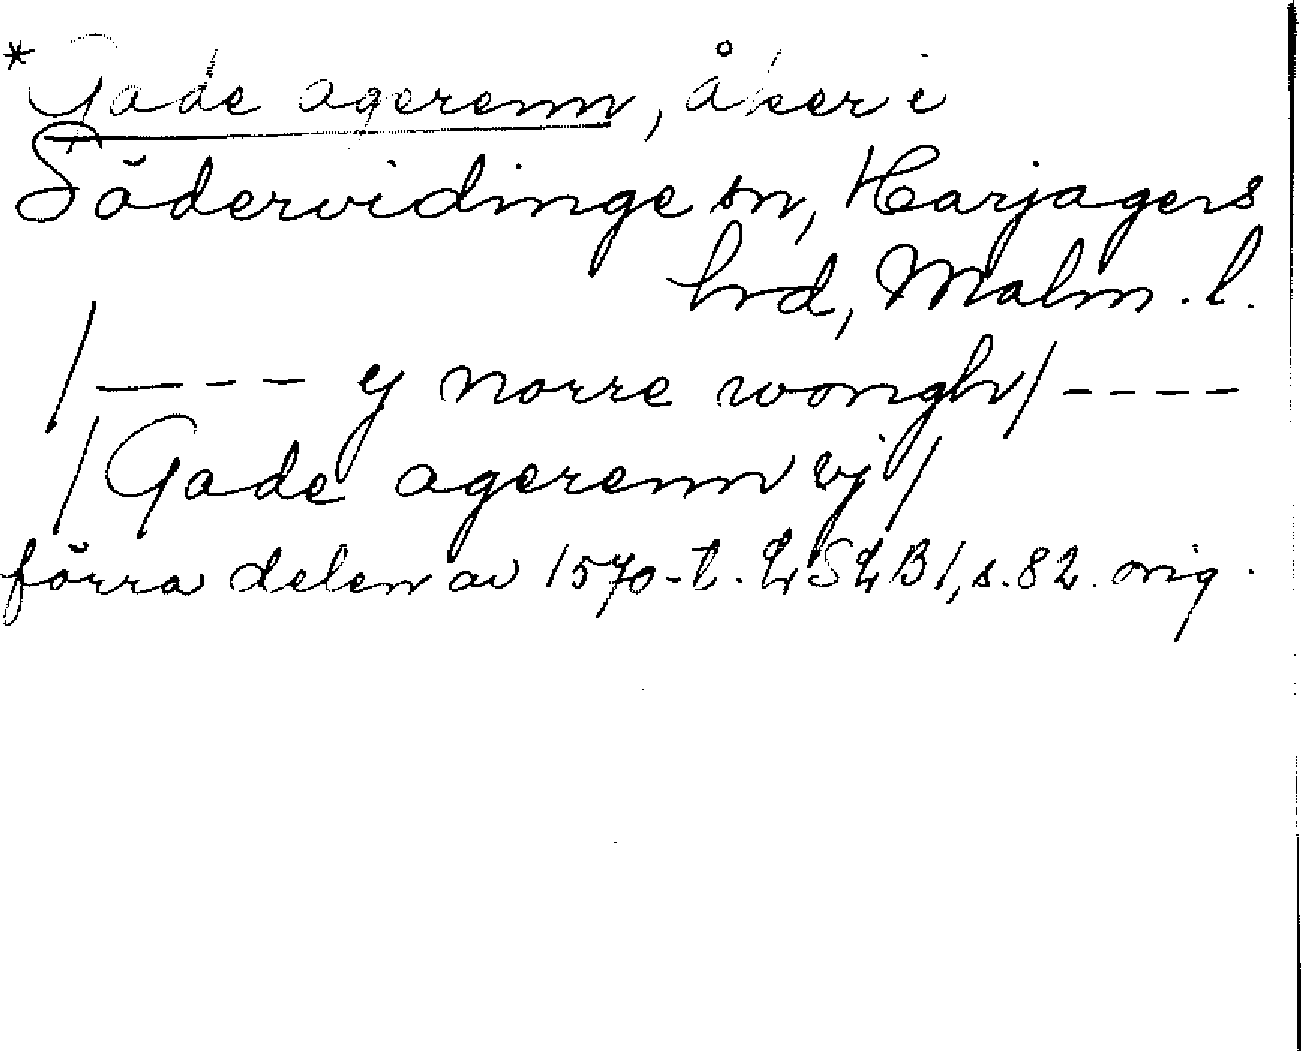 *Gade agerenn, åker i
Södervidinge sn, Harjagers
hrd, Malm. l.
/---- y norre wongh/----
/Gade agerenn vj/
förra delen av 1570-t. LSLB1, s. 82. orig.